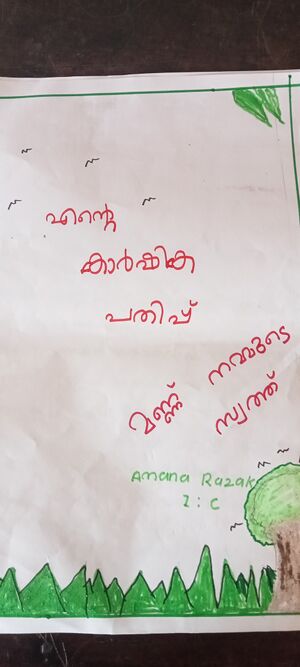 എന്റെ
കാർഷിക
പതിപ്പ്
മണ്ണ് നമ്മുടെ
സ്വത്ത്
Amana Razak
2 : C